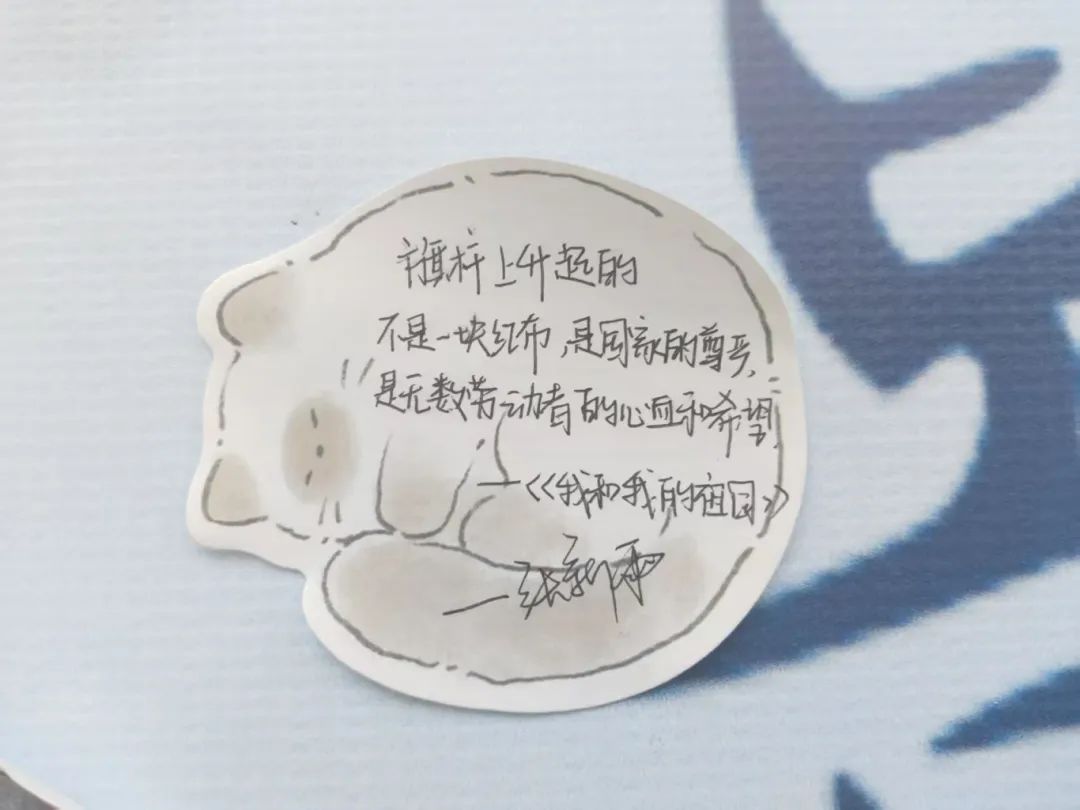 旗杆上升起的
不是一块红布,是国家的尊严,
是无数劳动者的心血和希望.
—《我和我的祖国》
—张新雨